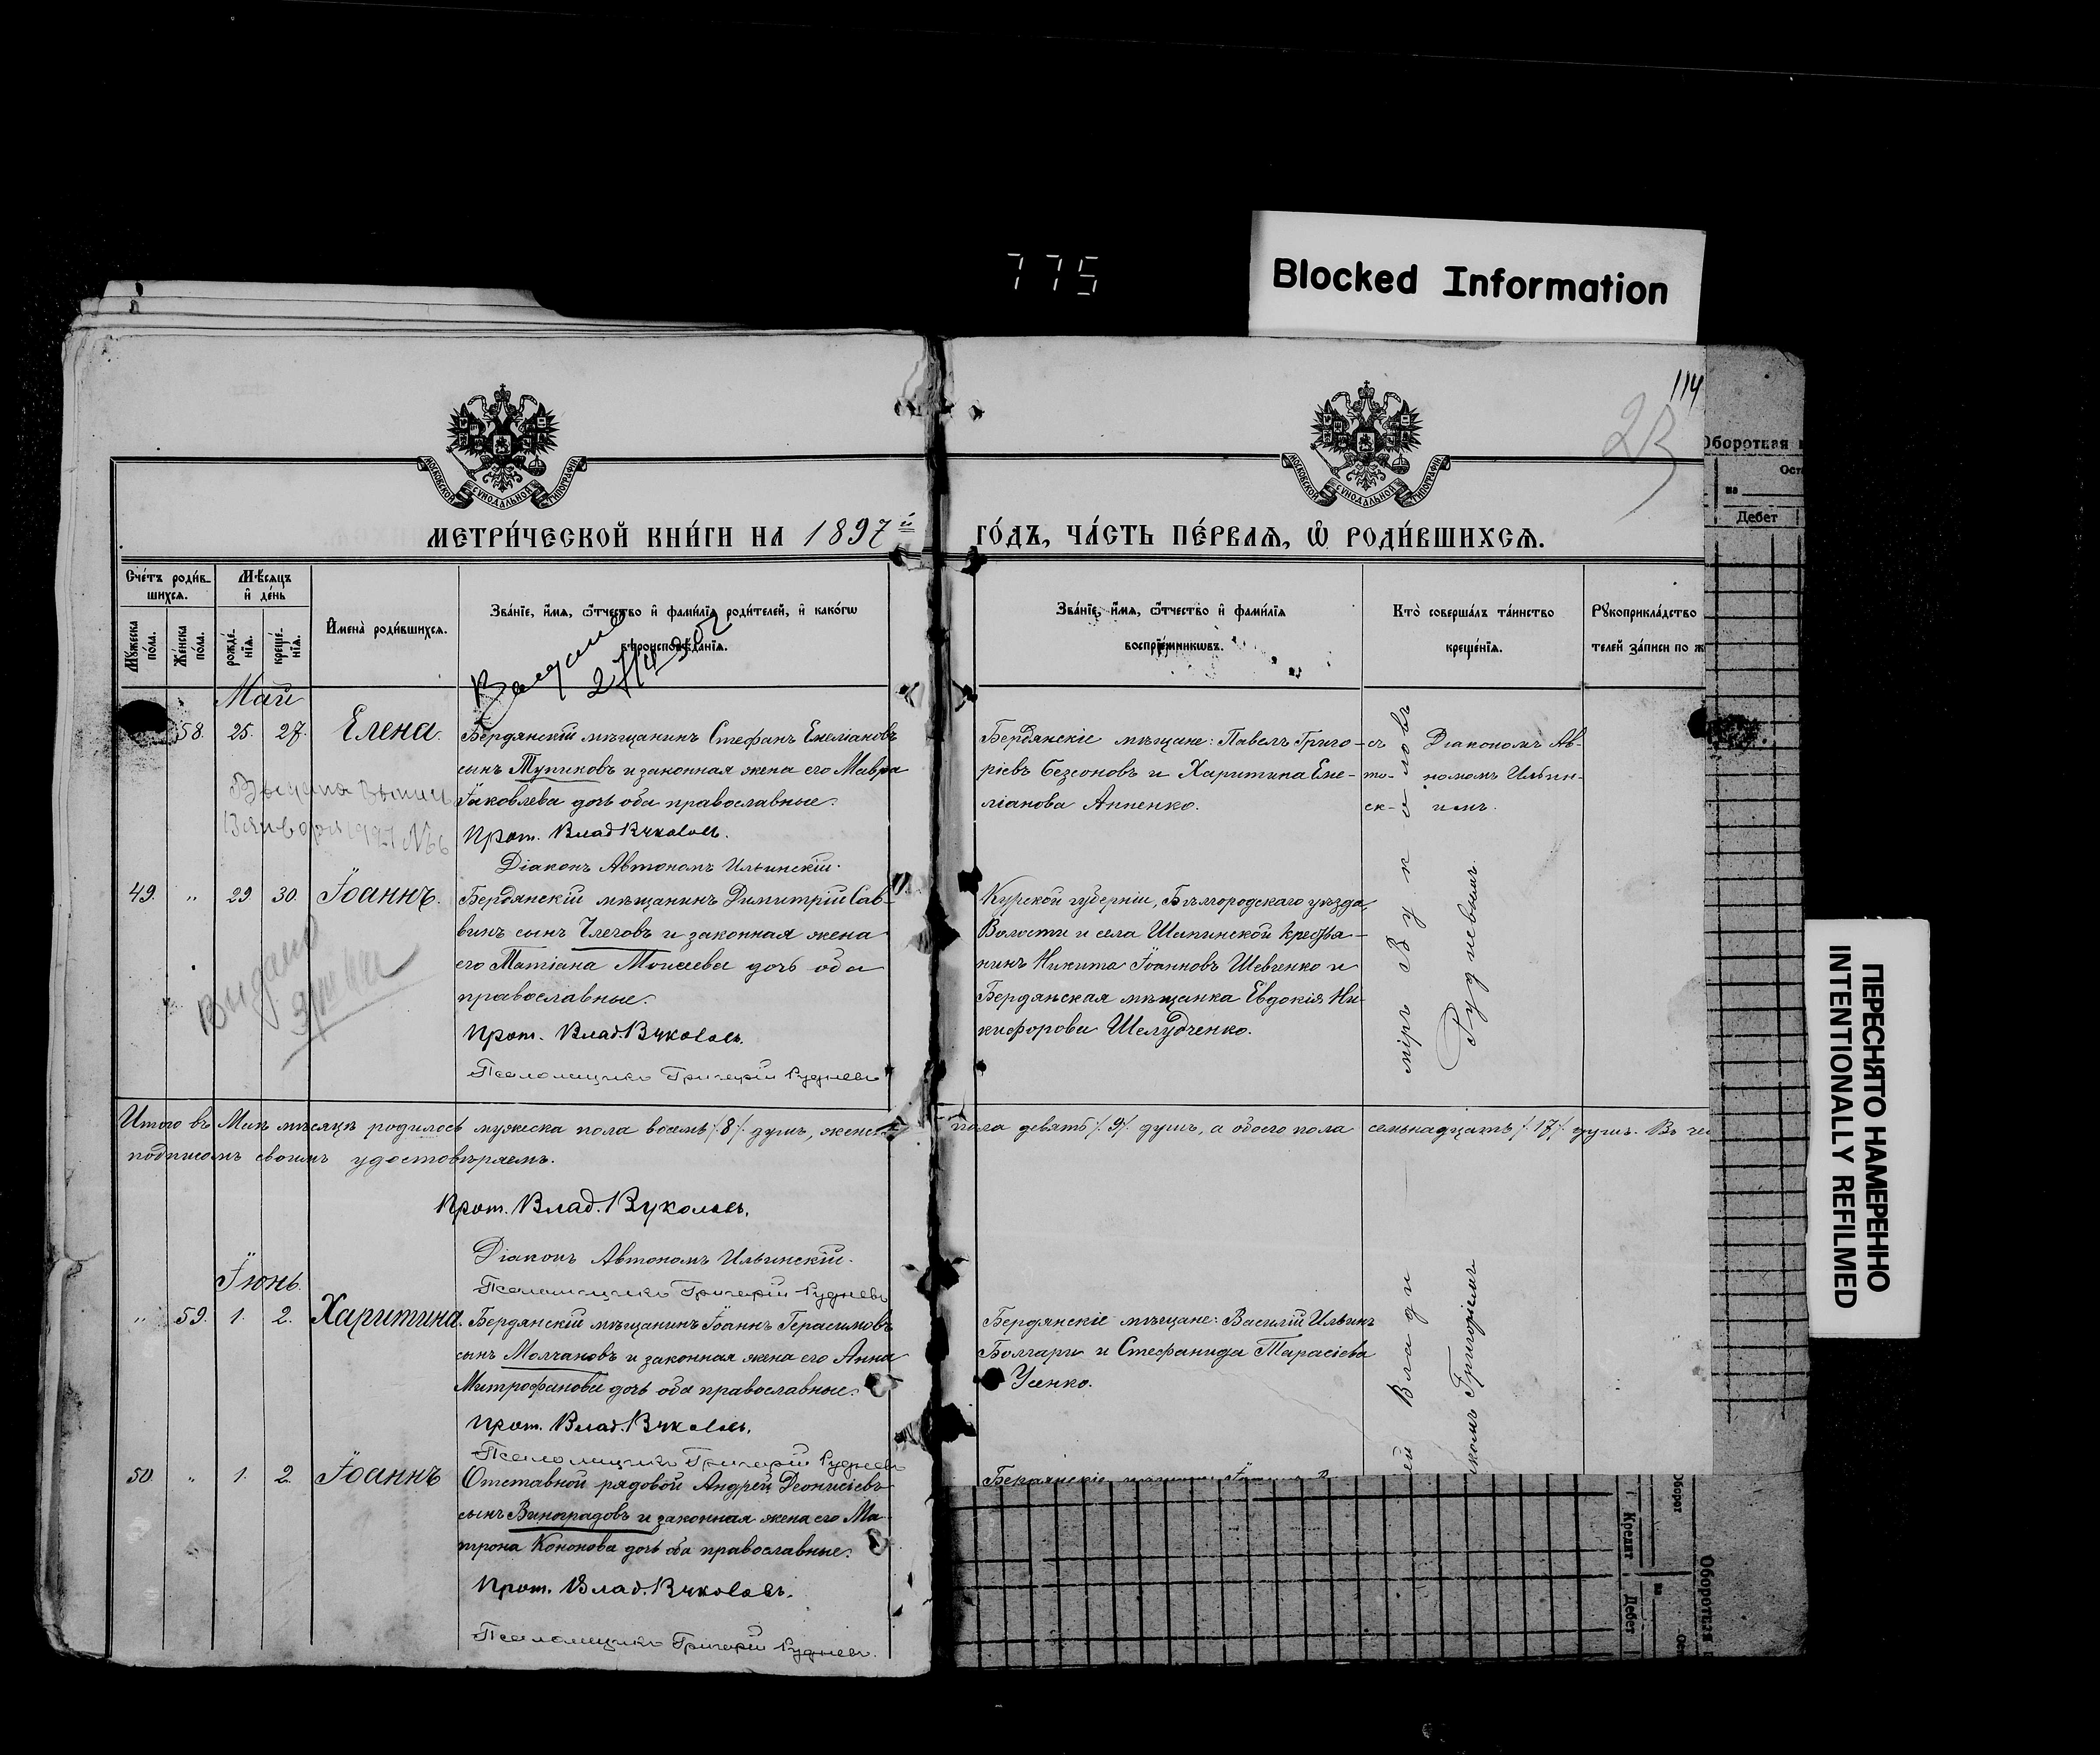 775
Blocked Information
114
23
МОСКОВСКОЙ СѴНОДАЛЬНОЙ ТИПОГРАФІИ
МОСКОВСКОЙ СѴНОДАЛЬНОЙ ТИПОГРАФІИ
МЕТРИ́ЧЕСКОЙ КНИ́ГИ НА 1897й
ГО́ДЪ, ЧА́СТЬ ПЕ́РВАѦ, Ѡ РОДИ́ВШИХСѦ.
Сче́тъ роди́в-
шихсѧ.
Мѣ́сѧцъ
и҆ де́нь
Мꙋ́жеска по́ла.
Же́нска по́ла.
рожде́-
нїѧ.
креще́-
нїѧ.
И҆мена̀ роди́вшихсѧ.
Зва́нїе, и҆́мѧ, ѻ҆́тчество и҆ фами́лїѧ роди́телей, и҆ како́гѡ
вѣроисповѣ́данїѧ.
Зва́нїе, и҆́мѧ, ѻ҆́тчество и҆ фами́лїѧ
воспрїе́мникѡвъ.
Кто̀ соверша́лъ та́инство
креще́нїѧ.
Рꙋкоприкла́дство
телей за́писи по ж
Май
58. 25. 27. Елена.
Бердянскій мѣщанинъ Стефанъ Емеліановъ
сынъ Тупиковъ и законная жена его Мавра
Іаковлева дочь оба православные.
Прот. Влад. Вуколовъ.
Діаконъ Автономъ Ильинскій.
Бердянскіе мѣщане: Павелъ Григо-
ріевъ Безсоновъ и Харитина Еме-
ліанова Анненко.
съ Діакономъ Ав-
то- номомъ Ильин-
ск- имъ.
49. " 29. 30. Іоаннъ.
Бердянскій мѣщанинъ Димитрій Сав-
винъ сынъ Члеговъ и законная жена
его Татіана Моисеева дочь оба
православные.
Прот. Влад. Вуколовъ.
Псаломщикъ Григорій Рудневъ
Курской губерніи, Бѣлгородскаго уѣзда,
Волости и села Шапинской крестья-
нинъ Никита Іоанновъ Шевченко и
Бердянская мѣщанка Евдокія Ни-
кифорова Шелудченко.
міръ Вуколовъ
Рудневымъ.
Выдано
Итого въ Маѣ мѣсяцѣ родилось мужеска пола восемь /8/ душъ, женска
пола девять /9/ душъ, а обоего пола семьнадцать /17/ душъ. Въ чем
подписомъ своимъ удостовѣряемъ.
Прот. Влад. Вуколовъ.
Діаконъ Автономъ Ильинскій.
Псаломщикъ Григорій Рудневъ
Іюнь.
" 59. 1. 2. Харитина.
Бердянскій мѣщанинъ Іоаннъ Герасимовъ
сынъ Молчановъ и законная жена его Анна
Митрофанова дочь оба православные.
Прот. Влад. Вуколовъ.
Псаломщикъ Григорій Рудневъ
Бердянскіе мѣщане: Василій Ильинъ
Болгаръ и Стефанида Тарасіева
Усенко.
ей Влади
икомъ Григоріемъ
50. " 1. 2. Іоаннъ
Отставной рядовой Андрей Діонисіевъ
сынъ Виноградовъ и законная жена его Ма-
трона Кононова дочь оба православные.
Прот. Влад. Вуколовъ.
Псаломщикъ Григорій Рудневъ.
Бердянскіе
Оборотная
на
Дебет
Кредит
Дебет
на
Оборотная
оборот
ПЕРЕСНЯТО НАМЕРЕННО
INTENTIONALLY REFILMED